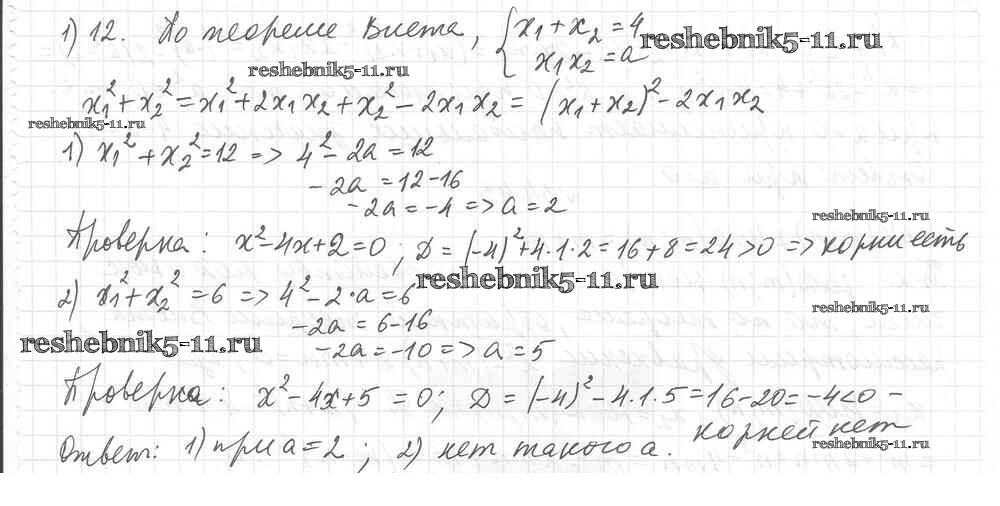 1) 12. По теореме Виета, { x₁ + x₂ = 4
x₁x₂ = a
reshebnik5-11.ru
reshebnik5-11.ru
x₁² + x₂² = x₁² + 2x₁x₂ + x₂² - 2x₁x₂ = (x₁ + x₂)² - 2x₁x₂
reshebnik5-11.ru
1) x₁² + x₂² = 12 => 4² - 2a = 12
-2a = 12 - 16
-2a = -4 => a = 2
reshebnik5-11.ru
Проверка: x² - 4x + 2 = 0; D = (-4)² + 4·1·2 = 16 + 8 = 24 > 0 => корни есть
reshebnik5-11.ru
2) x₁² + x₂² = 6 => 4² - 2·a = 6
reshebnik5-11.ru
-2a = 6 - 16
reshebnik5-11.ru
-2a = -10 => a = 5
Проверка: x² - 4x + 5 = 0; D = (-4)² - 4·1·5 = 16 - 20 = -4 < 0 -
корней нет
reshebnik5-11.ru
Ответ: 1) при a = 2; 2) нет такого a.